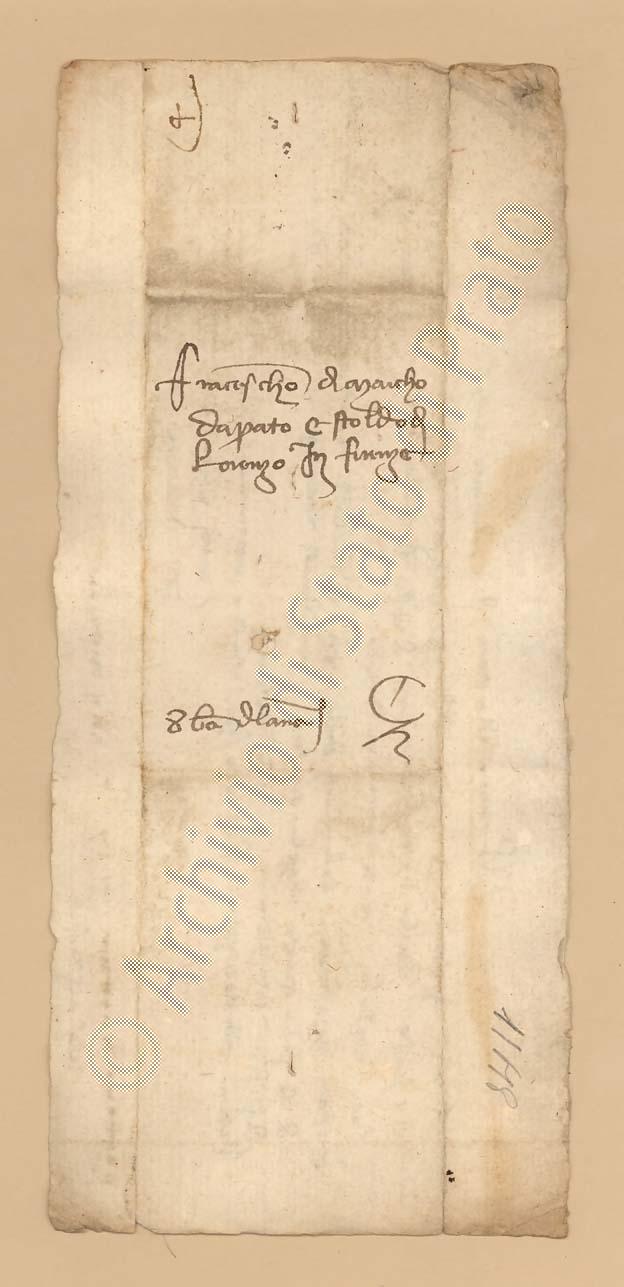 Francescho di Marcho
da prato e stoldo di
Lorenzo In firenze
8 ba di lana
© Archivio di Stato di Prato